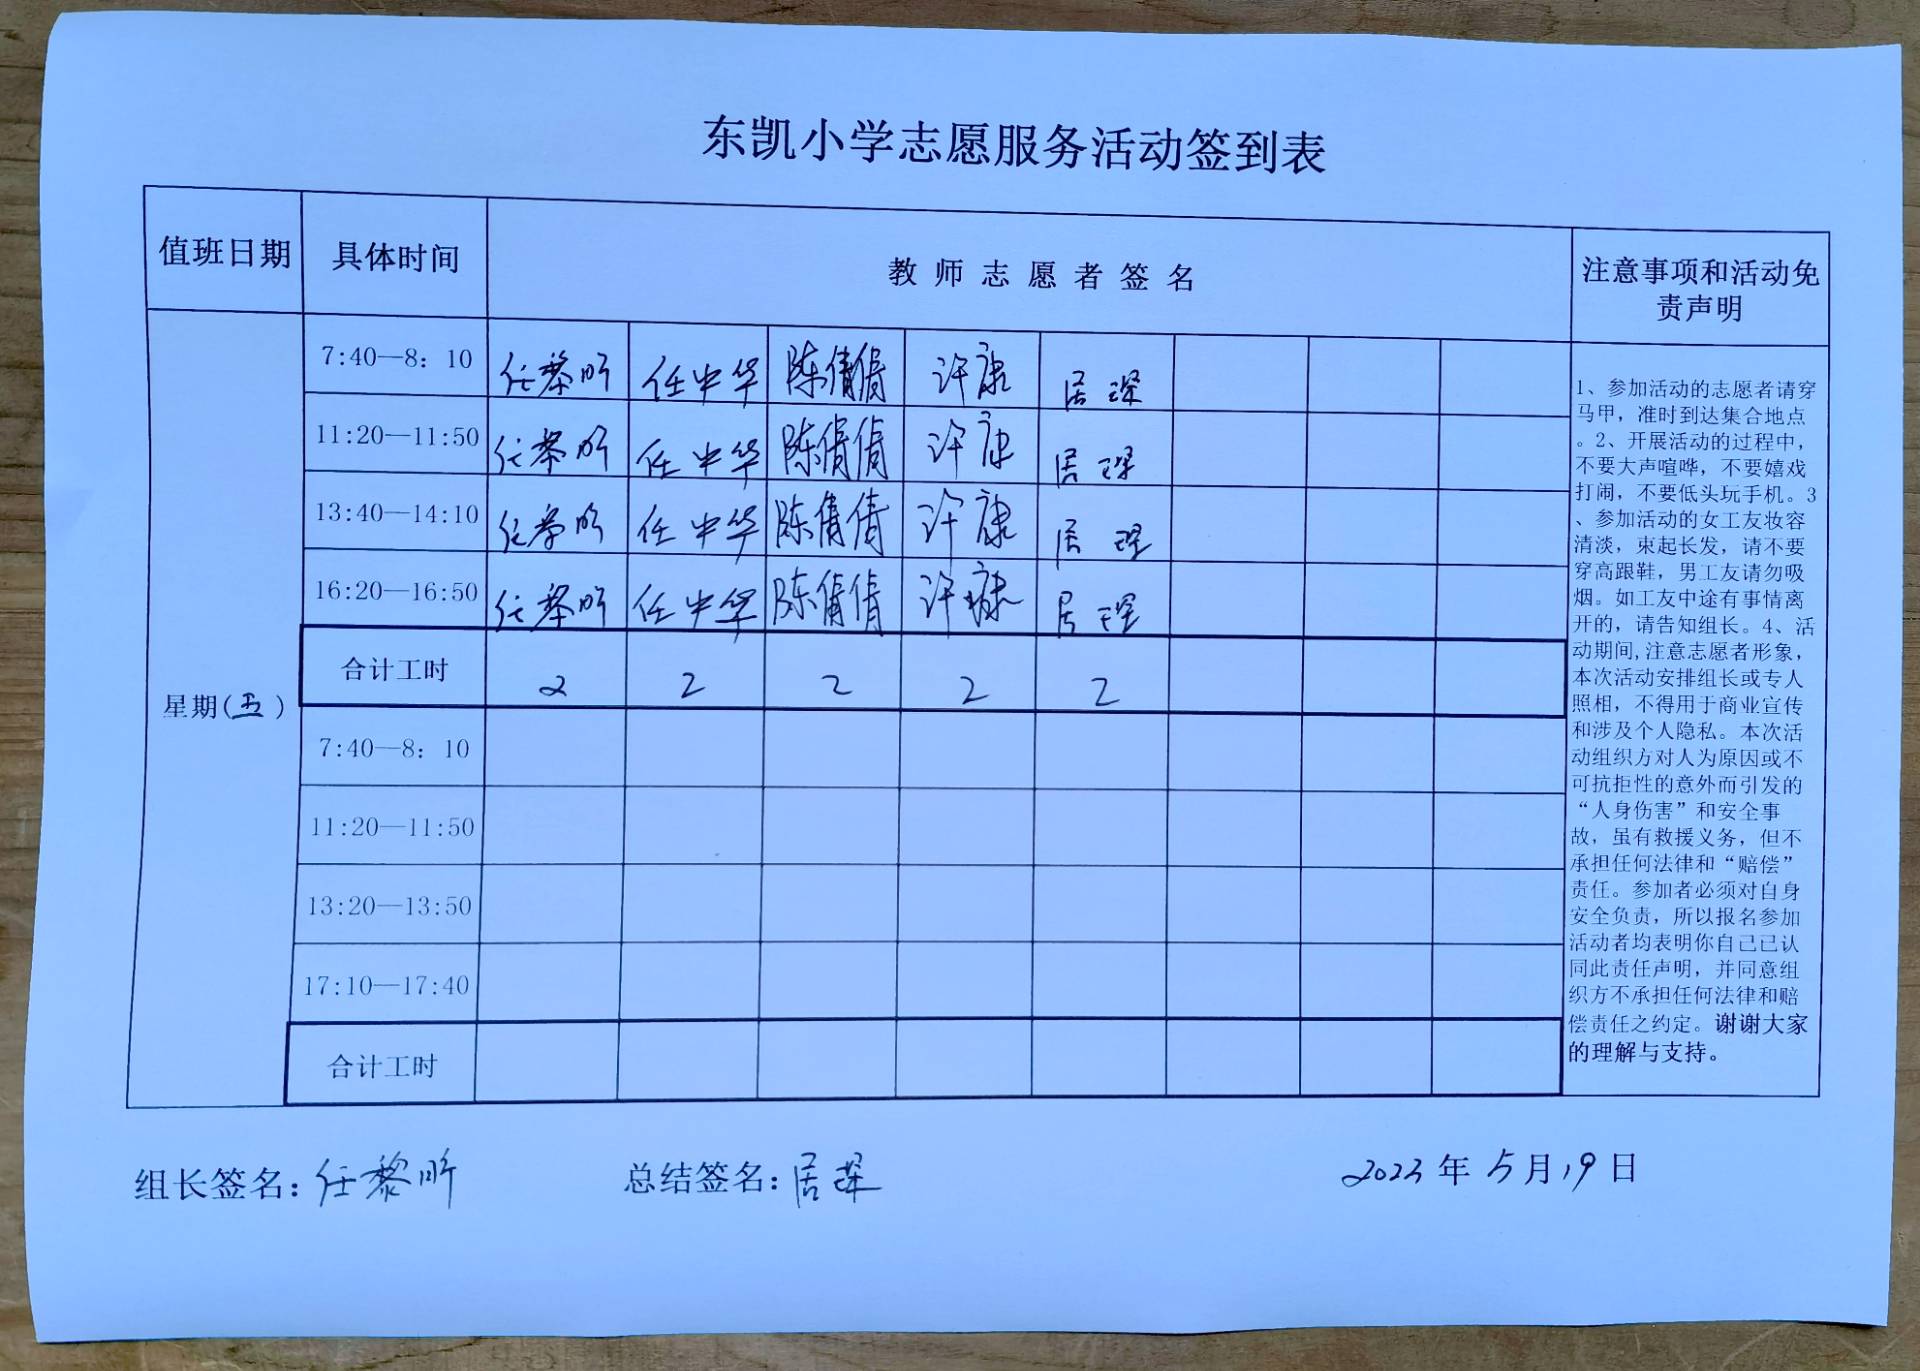 东凯小学志愿服务活动签到表
值班日期 具体时间 教师志愿者签名 注意事项和活动免
责声明
7:40—8：10 任黎昕 任中华 陈倩倩 许康 居琛
11:20—11:50 任黎昕 任中华 陈倩倩 许康 居琛
13:40—14:10 任黎昕 任中华 陈倩倩 许康 居琛
16:20—16:50 任黎昕 任中华 陈倩倩 许康 居琛
合计工时 2 2 2 2 2
星期(五)
7:40—8：10
11:20—11:50
13:20—13:50
17:10—17:40
合计工时
1、参加活动的志愿者请穿
马甲，准时到达集合地点
。2、开展活动的过程中，
不要大声喧哗，不要嬉戏
打闹，不要低头玩手机。3
、参加活动的女工友妆容
清淡，束起长发，请不要
穿高跟鞋，男工友请勿吸
烟。如工友中途有事情离
开的，请告知组长。4、活
动期间,注意志愿者形象，
本次活动安排组长或专人
照相，不得用于商业宣传
和涉及个人隐私。本次活
动组织方对人为原因或不
可抗拒性的意外而引发的
“人身伤害”和安全事
故，虽有救援义务，但不
承担任何法律和“赔偿”
责任。参加者必须对自身
安全负责，所以报名参加
活动者均表明你自己已认
同此责任声明，并同意组
织方不承担任何法律和赔
偿责任之约定。谢谢大家
的理解与支持。
组长签名：任黎昕 总结签名：居琛 2023年5月19日